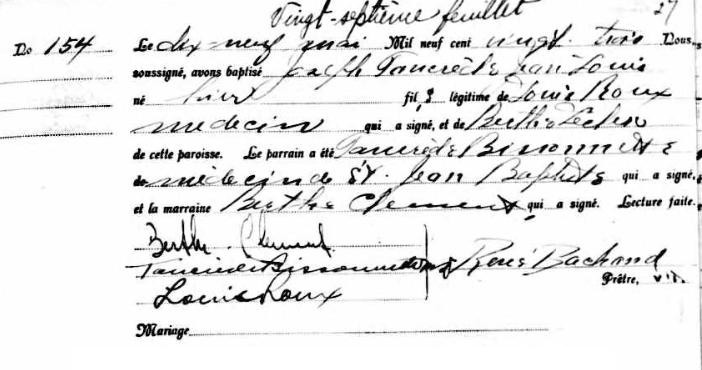 Vingt-septième feuillet 27
No 154 Le dix-neuf mai Mil neuf cent vingt trois Nous
soussigné, avons baptisé Joseph Tancrède Jean Louis
né hier fils légitime de Louis Roux
medecin qui a signé, et de Berthe
de cette paroisse. Le parrain a été Tancrède Bissonnette
médecin de St. Jean Baptiste qui a signé,
et la marraine Berthe Clement qui a signé. Lecture faite.
Berthe Clement
Tancrède Bissonnette René Bachand
Louis Roux Prêtre, vic.
Mariage